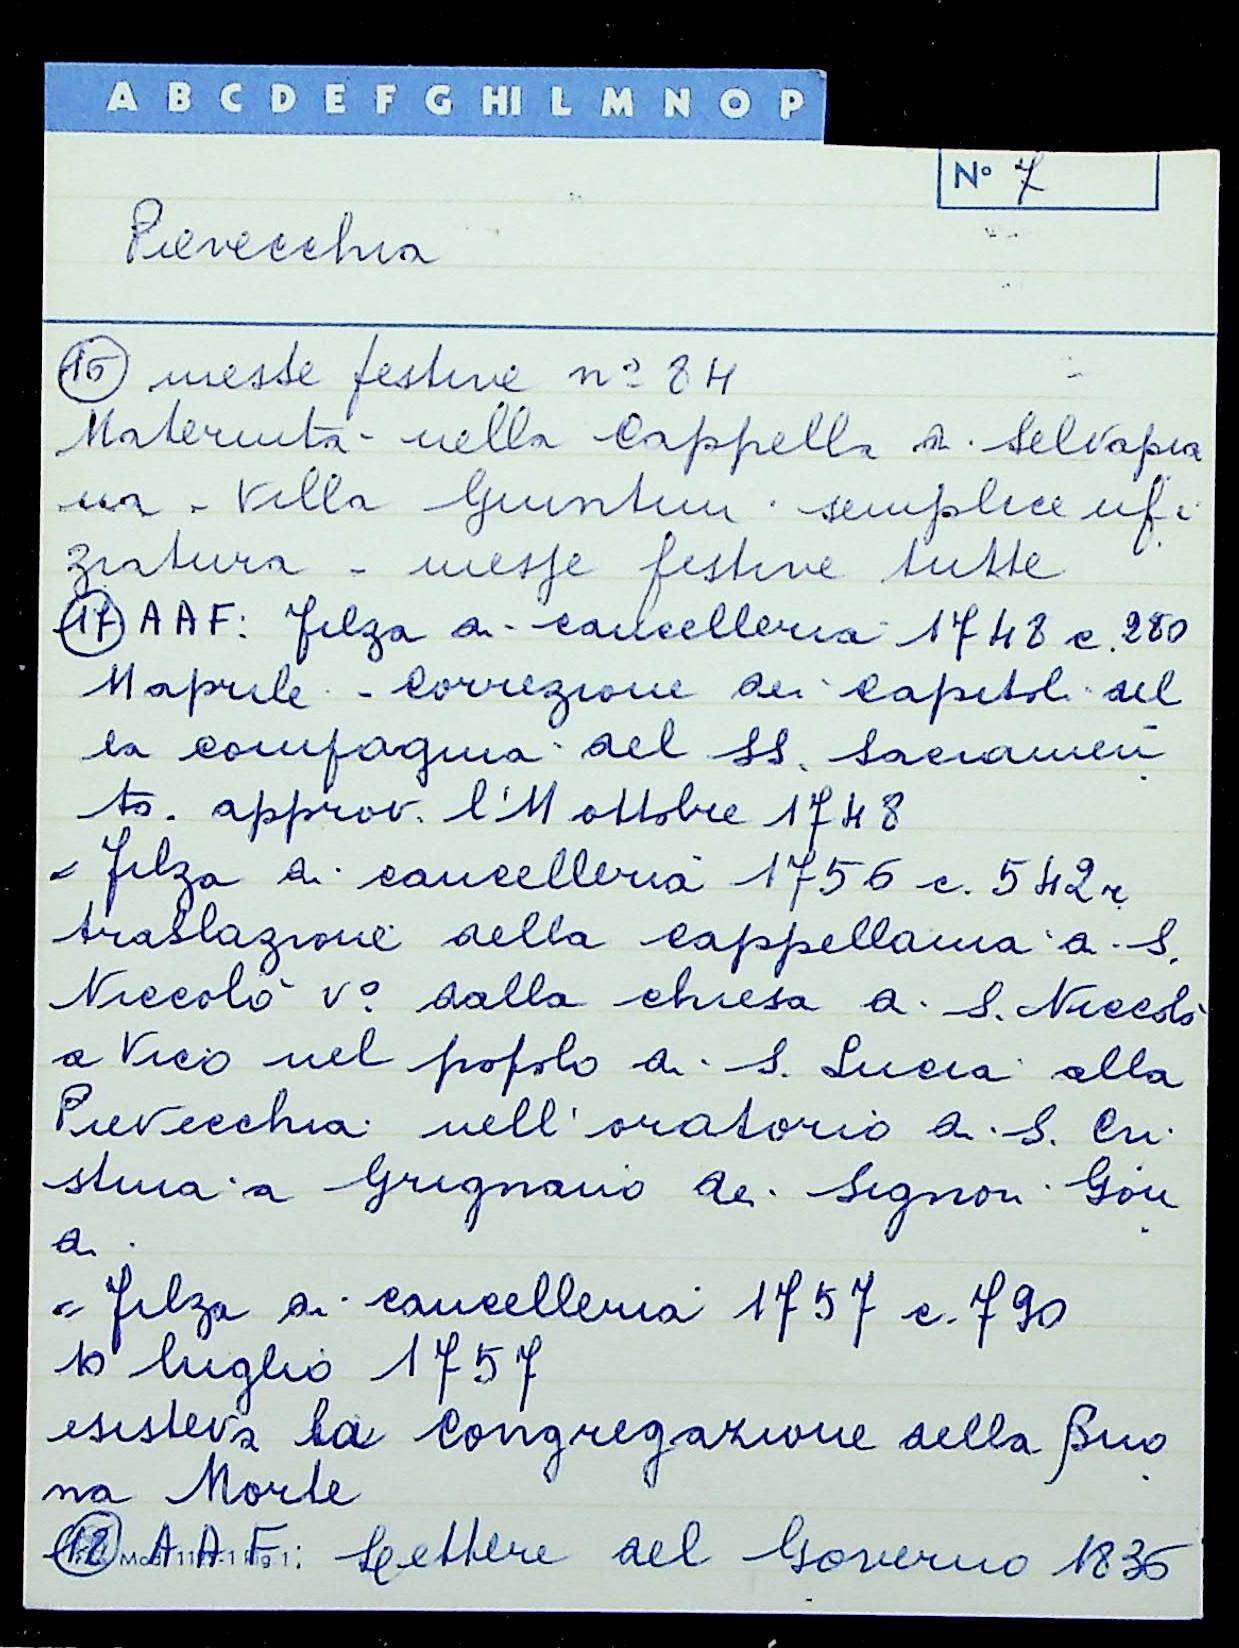 A B C D E F G HI L M N O P
N° 7
Pievecchia
16 messe festive n° 84
Maternità - nella Cappella di Selvapia
na - Villa Guintini - semplice ufi
ziatura - messe festive tutte
17 AAF: Filza di cancelleria 1748 c. 280
11 aprile - Correzione dei Capitoli del
la compagnia del SS. Sacramen
to. approv. l'11 ottobre 1748
= Filza di cancelleria 1756 c. 542r
traslazione della cappellania di S.
Niccolò V° dalla chiesa di S. Niccolò
a Vico nel popolo di S. Lucia alla
Pievecchia nell'oratorio di S. Cri
stina a Grignano dei Signori Gon
di
= Filza di cancelleria 1757 c. 790
10 luglio 1757
esisteva la Congregazione della Buo
na Morte
18 AAF: Lettere del Governo 1836